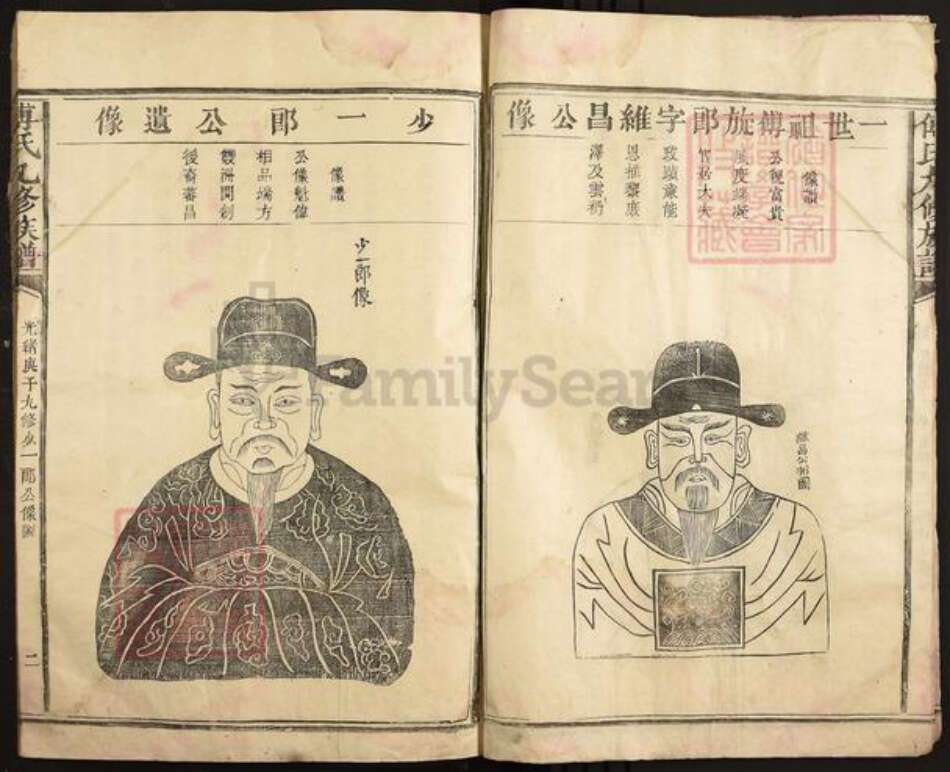 一世祖傅旋郎字維昌公像
像讚
公秉富貴
風度端凝
官居大夫
政蹟兼能
恩推黎庶
澤及雲礽
維昌公形圖
少一郎公遺像
像讚
公像魁偉
相品端方
後裔蕃昌
少一郎像
傅氏九修族譜
光緒庚子九修少一郎公像圖
二
傅氏九修族譜
FamilySear